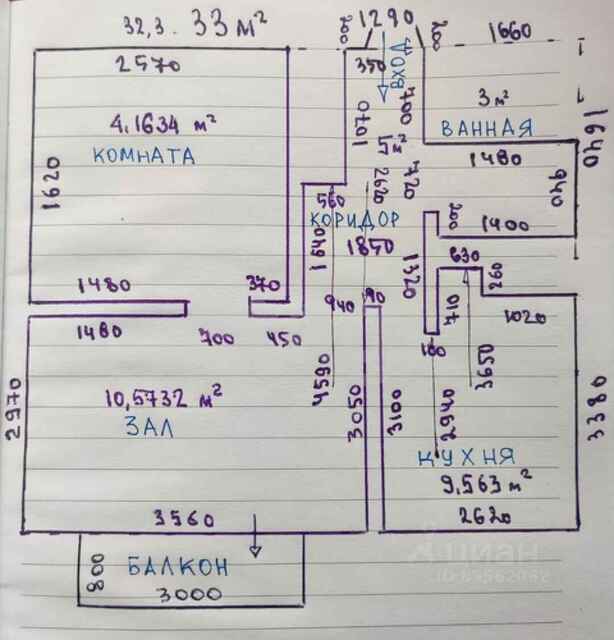 32,3. 33 м²
200
1290
200
1660
2570
350
ВХОД
4,1634 м²
КОМНАТА
1620
1070
700
3 м²
ВАННАЯ
1480
1640
940
5 м²
2620
720
560
КОРИДОР
200
1400
1640
1850
1320
630
260
1480
370
1480
700
450
940
90
710
1020
180
3650
2970
10,5732 м²
ЗАЛ
4590
3050
3100
2940
3380
КУХНЯ
9,563 м²
2620
3560
800
БАЛКОН
3000
циан